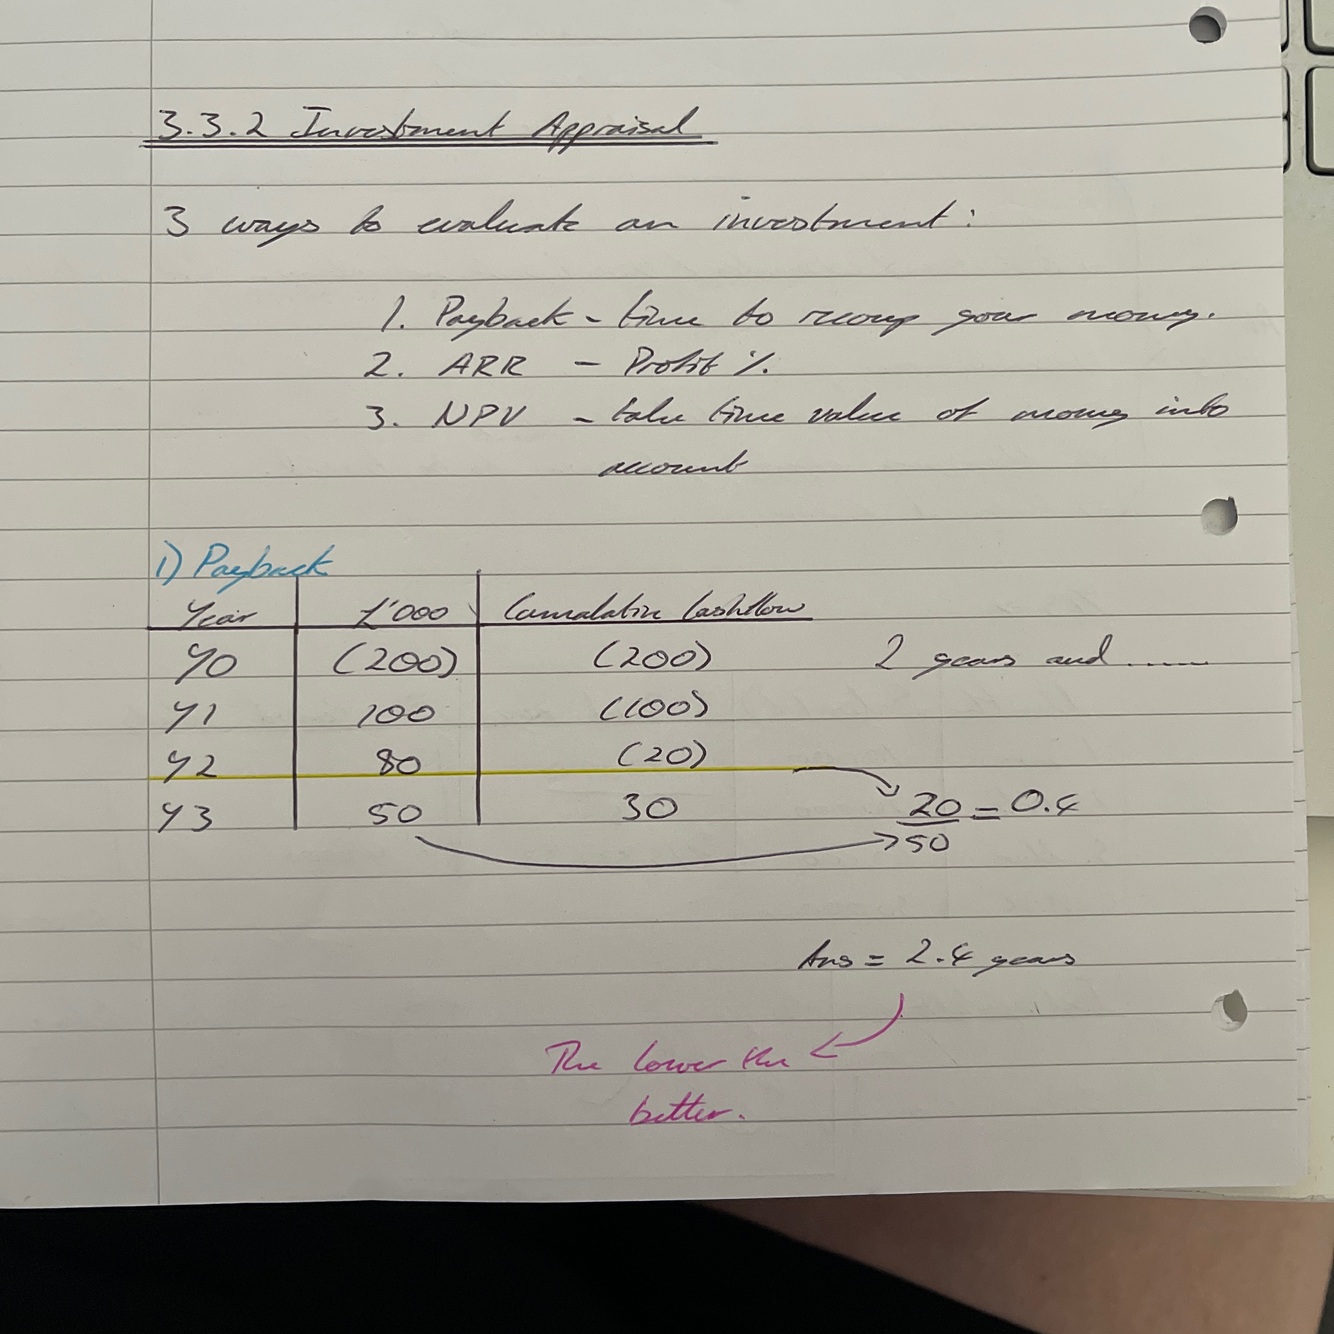 3.3.2 Investment Appraisal
3 ways to evaluate an investment:
1. Payback - time to recoup your money.
2. ARR - Profit %.
3. NPV - take time value of money into
account
1) Payback
Year £'000 Cumalative Cashflow
Y0 (200) (200) 2 years and ......
Y1 100 (100)
Y2 80 (20)
Y3 50 30 20/50 = 0.4
Ans = 2.4 years
The lower the
better.